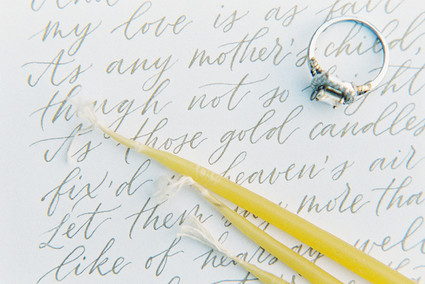 my love is as fair
As any mother's child,
though not so
As those gold candles
fix'd in heaven's air
Let them say more than
like of hearsay well